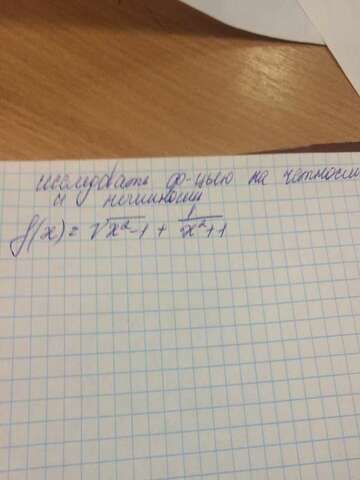 исследовать ф-цию на чётность
и нечётность
f(x) = √x²-1 + 1/x²+1